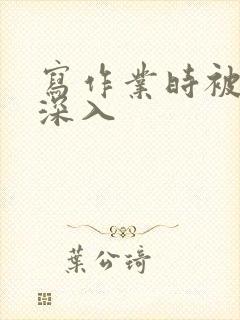 寫作業時被
深入
葉公琦